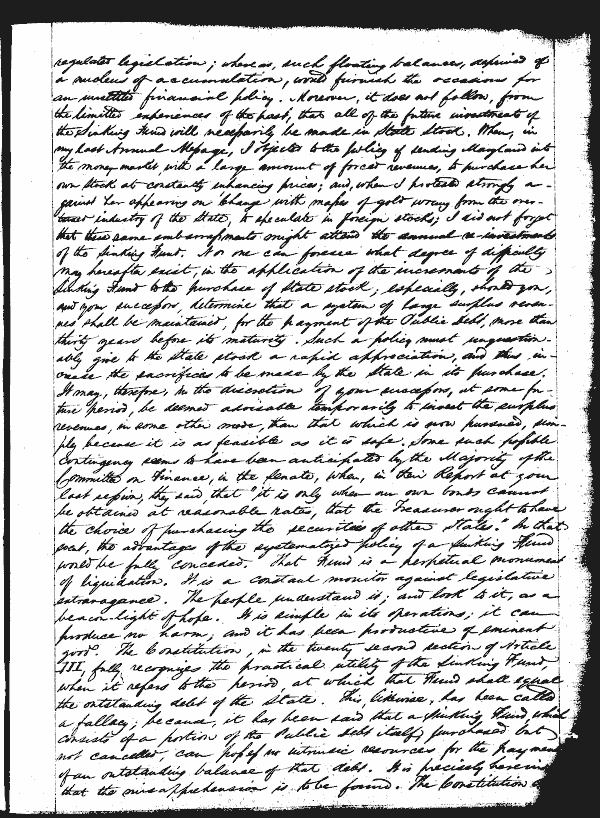 regulates legislation; whereas, such floating balances, deprived of
a nucleus of accumulation, would furnish the occasions for
an unsettled financial policy. Moreover, it does not follow, from
the limited experiences of the past, that all of the future investments of
the Sinking Fund will necessarily be made in State Stock. When, in
my last Annual Message, I objected to the policy of sending Maryland into
the money market, with a large amount of forced revenues, to purchase her
own Stock at constantly enhancing prices; and, when I protested strongly a-
gainst her appearing on 'Change with masses of gold wrung from the over-
taxed industry of the State, to speculate in foreign stocks; I did not forget
that these same embarrassments might attend the annual re-investments
of the Sinking Fund. No one can foresee what degree of difficulty
may hereafter exist, in the application of the increments of the
Sinking Fund to the purchase of State stock; especially, should you,
and your successors, determine that a system of large surplus reven-
ues shall be maintained, for the payment of the Public Debt, more than
thirty years before its maturity. Such a policy must unquestion-
ably give to the State stock a rapid appreciation, and thus, in-
crease the sacrifices to be made by the State in its purchase.
It may, therefore, in the discretion of your successors, at some fu-
ture period, be deemed advisable temporarily to invest the surplus
revenues, in some other mode, than that which is now pursued, sim-
ply because it is as feasible as it is safe. Some such possible
Contingency seems to have been anticipated by the Majority of the
Committee on Finance, in the Senate, when, in their Report at your
last session, they said, that "it is only when our own bonds cannot
be obtained at reasonable rates, that the Treasurer ought to have
the choice of purchasing the securities of other States." In that
event, the advantages of the systematized policy of a Sinking Fund
would be fully conceded. That Fund is a perpetual monument
of liquidation. It is a constant monitor against legislative
extravagance. The people understand it; and look to it, as a
beacon-light of hope. It is simple in its operations; it can
produce no harm; and it has been productive of eminent
good. The Constitution, in the twenty second section of Article
III, fully recognizes the practical utility of the Sinking Fund,
when it refers to the period, at which that Fund shall equal
the outstanding debt of the State. This, likewise, has been called
a fallacy; because, it has been said that a Sinking Fund, which
consists of a portion of the Public debt itself, purchased but
not cancelled, can possess no intrinsic resources for the payment
of an outstanding balance of that debt. It is precisely herein
that the misapprehension is to be found. The Constitution